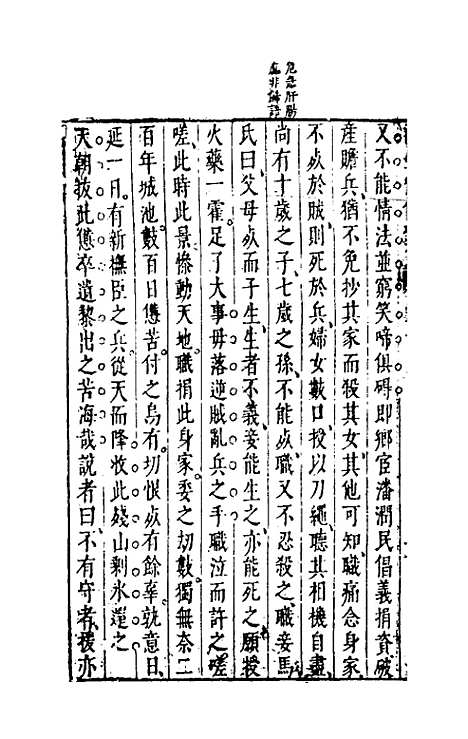 危急肝腸
並非飾語
又不能情法並窮笑啼俱碍即鄉官潘潤民倡義捐資破
產贍兵猶不免抄其家而殺其女其他可知職痛念身家
不死於賊則死於兵婦女數口投以刀繩聽其相機自盡
尚有十歲之子七歲之孫不能死職又不忍殺之職妾馬
氏曰父母死而子生生者不義妾能生之亦能死之願授
火藥一霍足了大事毋落逆賊亂兵之手職泣而許之嗟
嗟此時此景慘動天地職捐此身家委之刼數獨無奈二
百年城池數百日憊苦付之烏有切恨死有餘辜孰意日
延一日有新撫臣之兵從天而降收此殘山剩水還之
天朝拔此憊卒遺黎出之苦海哉說者曰不有守者援亦